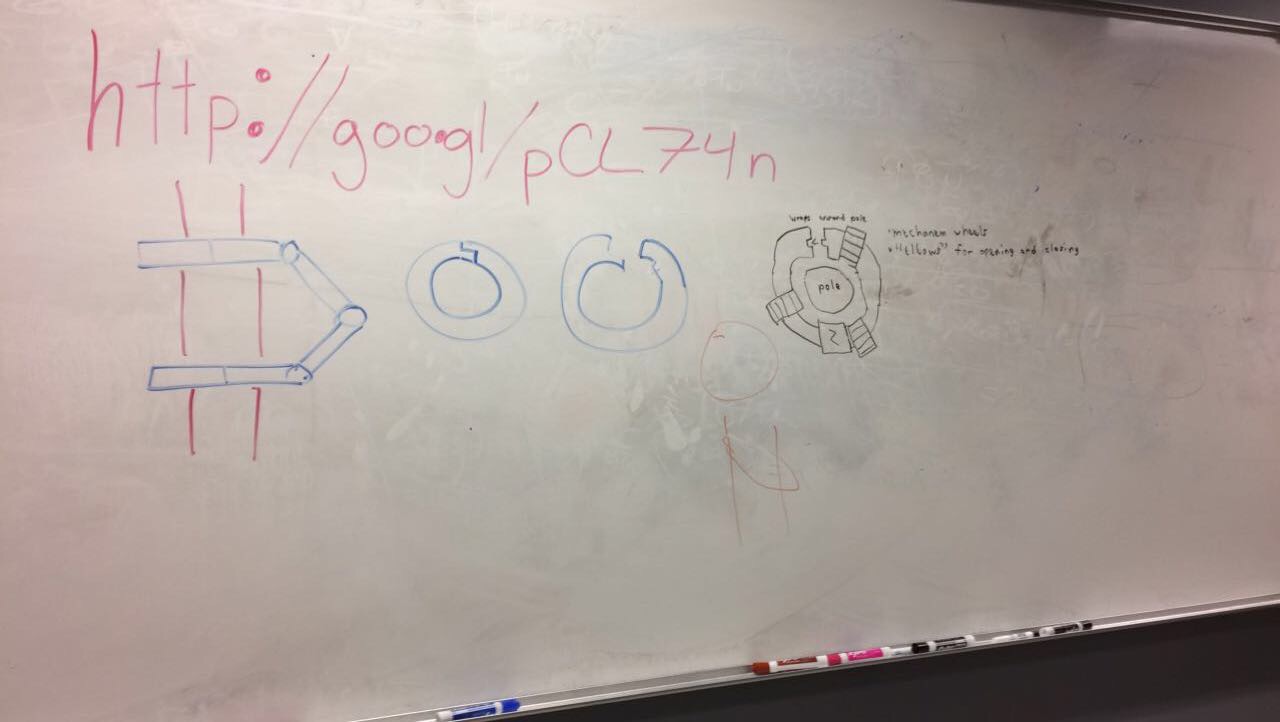 http://goo.gl/pCL74n
wraps around pole
"mechanem wheels
"Elbows" for opening and closing
pole